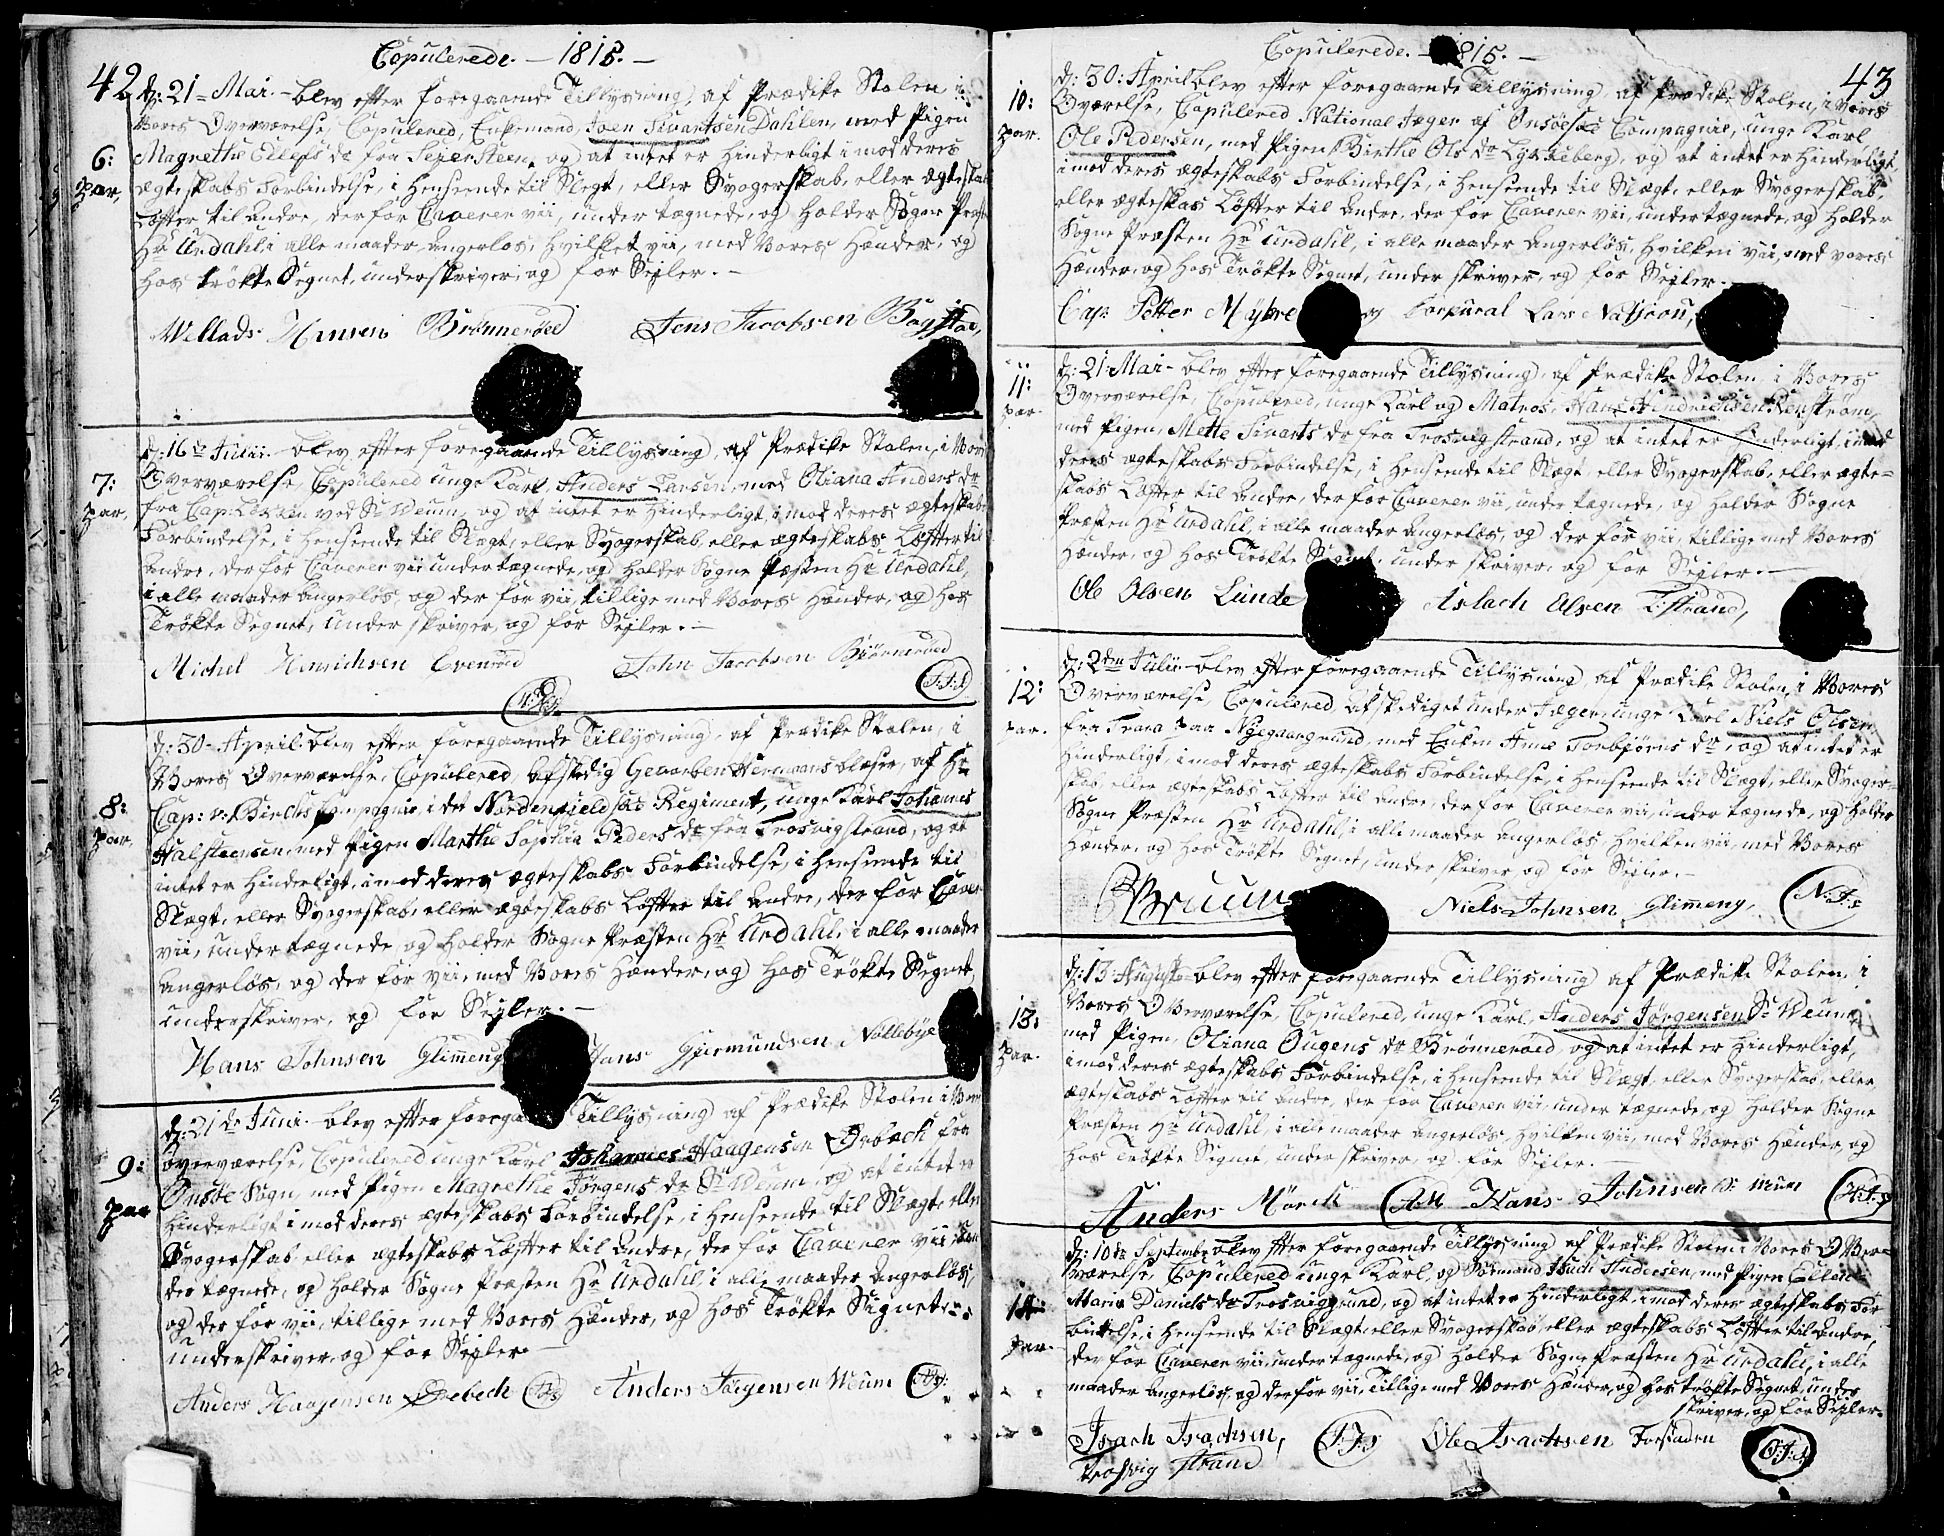 Copulerede. — 1815. —
42
d: 21 = Mai. — blev efter foregaaende Tillysning, af Prædike Stolen i
Vores Overværelse, Copulered, Enkemand, Joen Sivartsen Dahlen, med Pigen
6: par,
Magrethe Ellefs dr fra Sezersteen, og at intet er Hinderligt i mod deres
ægteskabs Forbindelse, i Henseende til Slegt, eller Svogerskab, eller ægteskab
Løfter til andre, der for Caverer vii, under tægnede, og Holder Sogne Præst
Hr Urdahl i alle maader angerløs, Hvilket vii, med Vores Hænder, og
hos trøkte Segnet, underskriver, og for Sejler. —
Wellads Hansen Brønnerød Jens Jacobsen Bogstad,
7: par,
d: 16de Julii. — blev efter foregaaende Tillysning, af Prædike Stolen, i Vor
Overværelse, Copulered unge Karl, Anders Larsen, med Oliana Anders dr
fra Cap: Løkken ved Sr Weum, og at intet er Hinderligt, i mod deres ægteskabs
Forbindelse, i Henseende til Slegt, eller Svogerskab, eller ægteskabs Løfter til
andre, der for Caverer vii under tægnede, og Holder Sogne Præsten Hr Urdahl,
i alle maader angerløs, og der for vii, tillige med Vores Hænder, og Hos
Trøkte Segnet, under skriver, og for Sejler. —
Michel Hinrichsen Evenrød John Jacobsen Biørnerød
J.J.S
8: par,
d: 30 - April. blev efter foregaaende Tillysning, af Prædike Stolen, i
Vores Overværelse, Copulered, afskedig Gevorben blæser, af Hr
Cap: v: Birchs Compagnie i det Nordenfieldske Regiment, unge Karl Johannes
Halsteensen, med Pigen Marthe Sophia Peders dr fra Trosvigstrand, og at
intet er Hinderligt, i mod deres ægteskabs Forbindelse, i Henseende til
Slægt, eller Svogerskab, eller ægteskabs Løfter til andre, der for Caver
vii, under tægnede, og Holder Sogne Præsten Hr Urdahl, i alle maader
angerløs, og der for vii, med Vores Hænder, og Hos Trøkte Segnet,
underskriver, og for Sejler. —
Hans Johnsen Glimeng Hans Gjermundsen Nollebye
9: par
d: 21de Juni. blev efter foregaa Tillysning af Prædike Stolen i Vor
Overværelse, Copulered unge Karl Johannes Haagensen Ørebech fra
Onsøe Sogn, med Pigen Magrethe Jørgens dr Sr Weum, og at intet er
Hinderligt i mod deres ægteskabs Forbindelse, i Henseende til Slægt, eller
Svogerskab eller ægteskabs Løfter til andre, der for Caverer vii un
der tægnede, og Holder Sogne Præsten Hr Urdahl i alle maader angerløs,
og der for vii, tillige med Vores Hænder, og Hos Trøkte Signeter
underskriver, og for Sejler —
Anders Haagensen Ørebech Anders Jørgensen Weum
Copulerede. — 1815. —
43
10: par.
d: 30: April blev efter foregaaende Tillysning, af Prædike Stolen, i Vores
Overværelse, Copulered National Jæger af Onsøeske Compagnie, unge Karl
Ole Pedersen, med Pigen Birthe Ols dr Lykkeberg, og at intet er Hinderligt,
i mod deres ægteskabs Forbindelse, i Henseende til Slægt, eller Svogerskab,
eller ægteskas Løfter til andre, der for Caverer vii, under tægnede, og Holder
Sogne Præsten Hr Urdahl, i alle maader angerløs, Hvilken vii, med vores
Hænder, og Hos Trøkte Segnet, under skriver, og for Sejler. —
Cap: Petter Myhre og Corpural Lars
11: par.
d: 21 Mai — blev efter foregaaende Tillysning, af Prædike Stolen, i Vores
Overværelse, Copulered, unge Karl og Matros, Hans Hindrichsen
med Pigen, Mette Sivarts dr fra Trosvigstrand, og at intet er Hinderligt, i mod
deres ægteskabs Forbindelse, i Henseende til Slægt eller Svogerskab, eller ægte=
skabs Løfter til andre, der for Caverer vii, under tægnede, og Holder Sogne
Præsten Hr Urdahl, i alle maader angerløs, og der for vii, tillige med Vores
Hænder, og Hos Trøkte Segnet, under skriver, og for Sejler. —
Ole Olsen Lunde Aslach Olsen T:strand,
12: par.
d: 2den Julii — blev efter foregaaende Tillysning af Prædike Stolen, i Vores
Overværelse, Copulered afskediget under Jæger, unge Karl Niels Olsen
fra Trara paa Nygaardgrund, med Enken Anne Torbjørns dr, og at intet er
Hinderligt, i mod deres ægteskabs Forbindelse, i Henseende til Slægt, eller Svoger=
skab, eller ægteskabs Løfter til andre, der for Caverer vii, under tægnede, og Holder
Sogne Præsten Hr Urdahl, i alle maader angerløs, Hvilken vii, med Vores
Hænder, og Hos Trøkte Segnet, underskriver og for Sejler. —
Bruun Niels Johnsen Glimeng, N.J.S
13: par.
d: 13 August — blev efter foregaaende Tillysning af Prædike Stolen, i
Vores Overværelse, Copulered, unge Karl, Anders Jørgensen Sr Weum
med Pigen, Oliana Ougens dr Brønnerød, og at intet er Hinderligt,
i mod deres ægteskabs Forbindelse, i Henseende til Slægt, eller Svogerskab, eller
ægteskabs Løfter til andre, der for Caverer vii, under tægnede, og Holder Sogne
Præsten Hr Urdahl, i alle maader angerløs, Hvilken vii, med Vores Hænder, og
Hos Trøkte Signet underskriver, og for Sejler. —
Anders Mørck A.M Hans Johnsen S: Weum H.J.S
14: par.
d: 10de Septembr blev efter foregaaende Tillysning af Prædike Stolen i Vores Over=
værelse, Copulered unge Karl, og Sømand Isach Andersen, med Pigen Ellen
Maria Daniels dr Trosviggrund, og at intet er Hinderligt, i mod deres ægteskabs For
bindelse, i Henseende til Slægt, eller Svogerskab eller ægteskabs Løfter til andre,
der for Caverer vii, under tægnede, og Holder Sogne Præsten Hr Urdahl, i alle
maader angerløs, og der for vii, Tillige med Vores Hænder, og Hos trøkte Segnet, under
skriver, og for Sejler.
Isach Isachsen, I.I.S Ole Isachsen Forstaden O.I.S
Trosvig strand